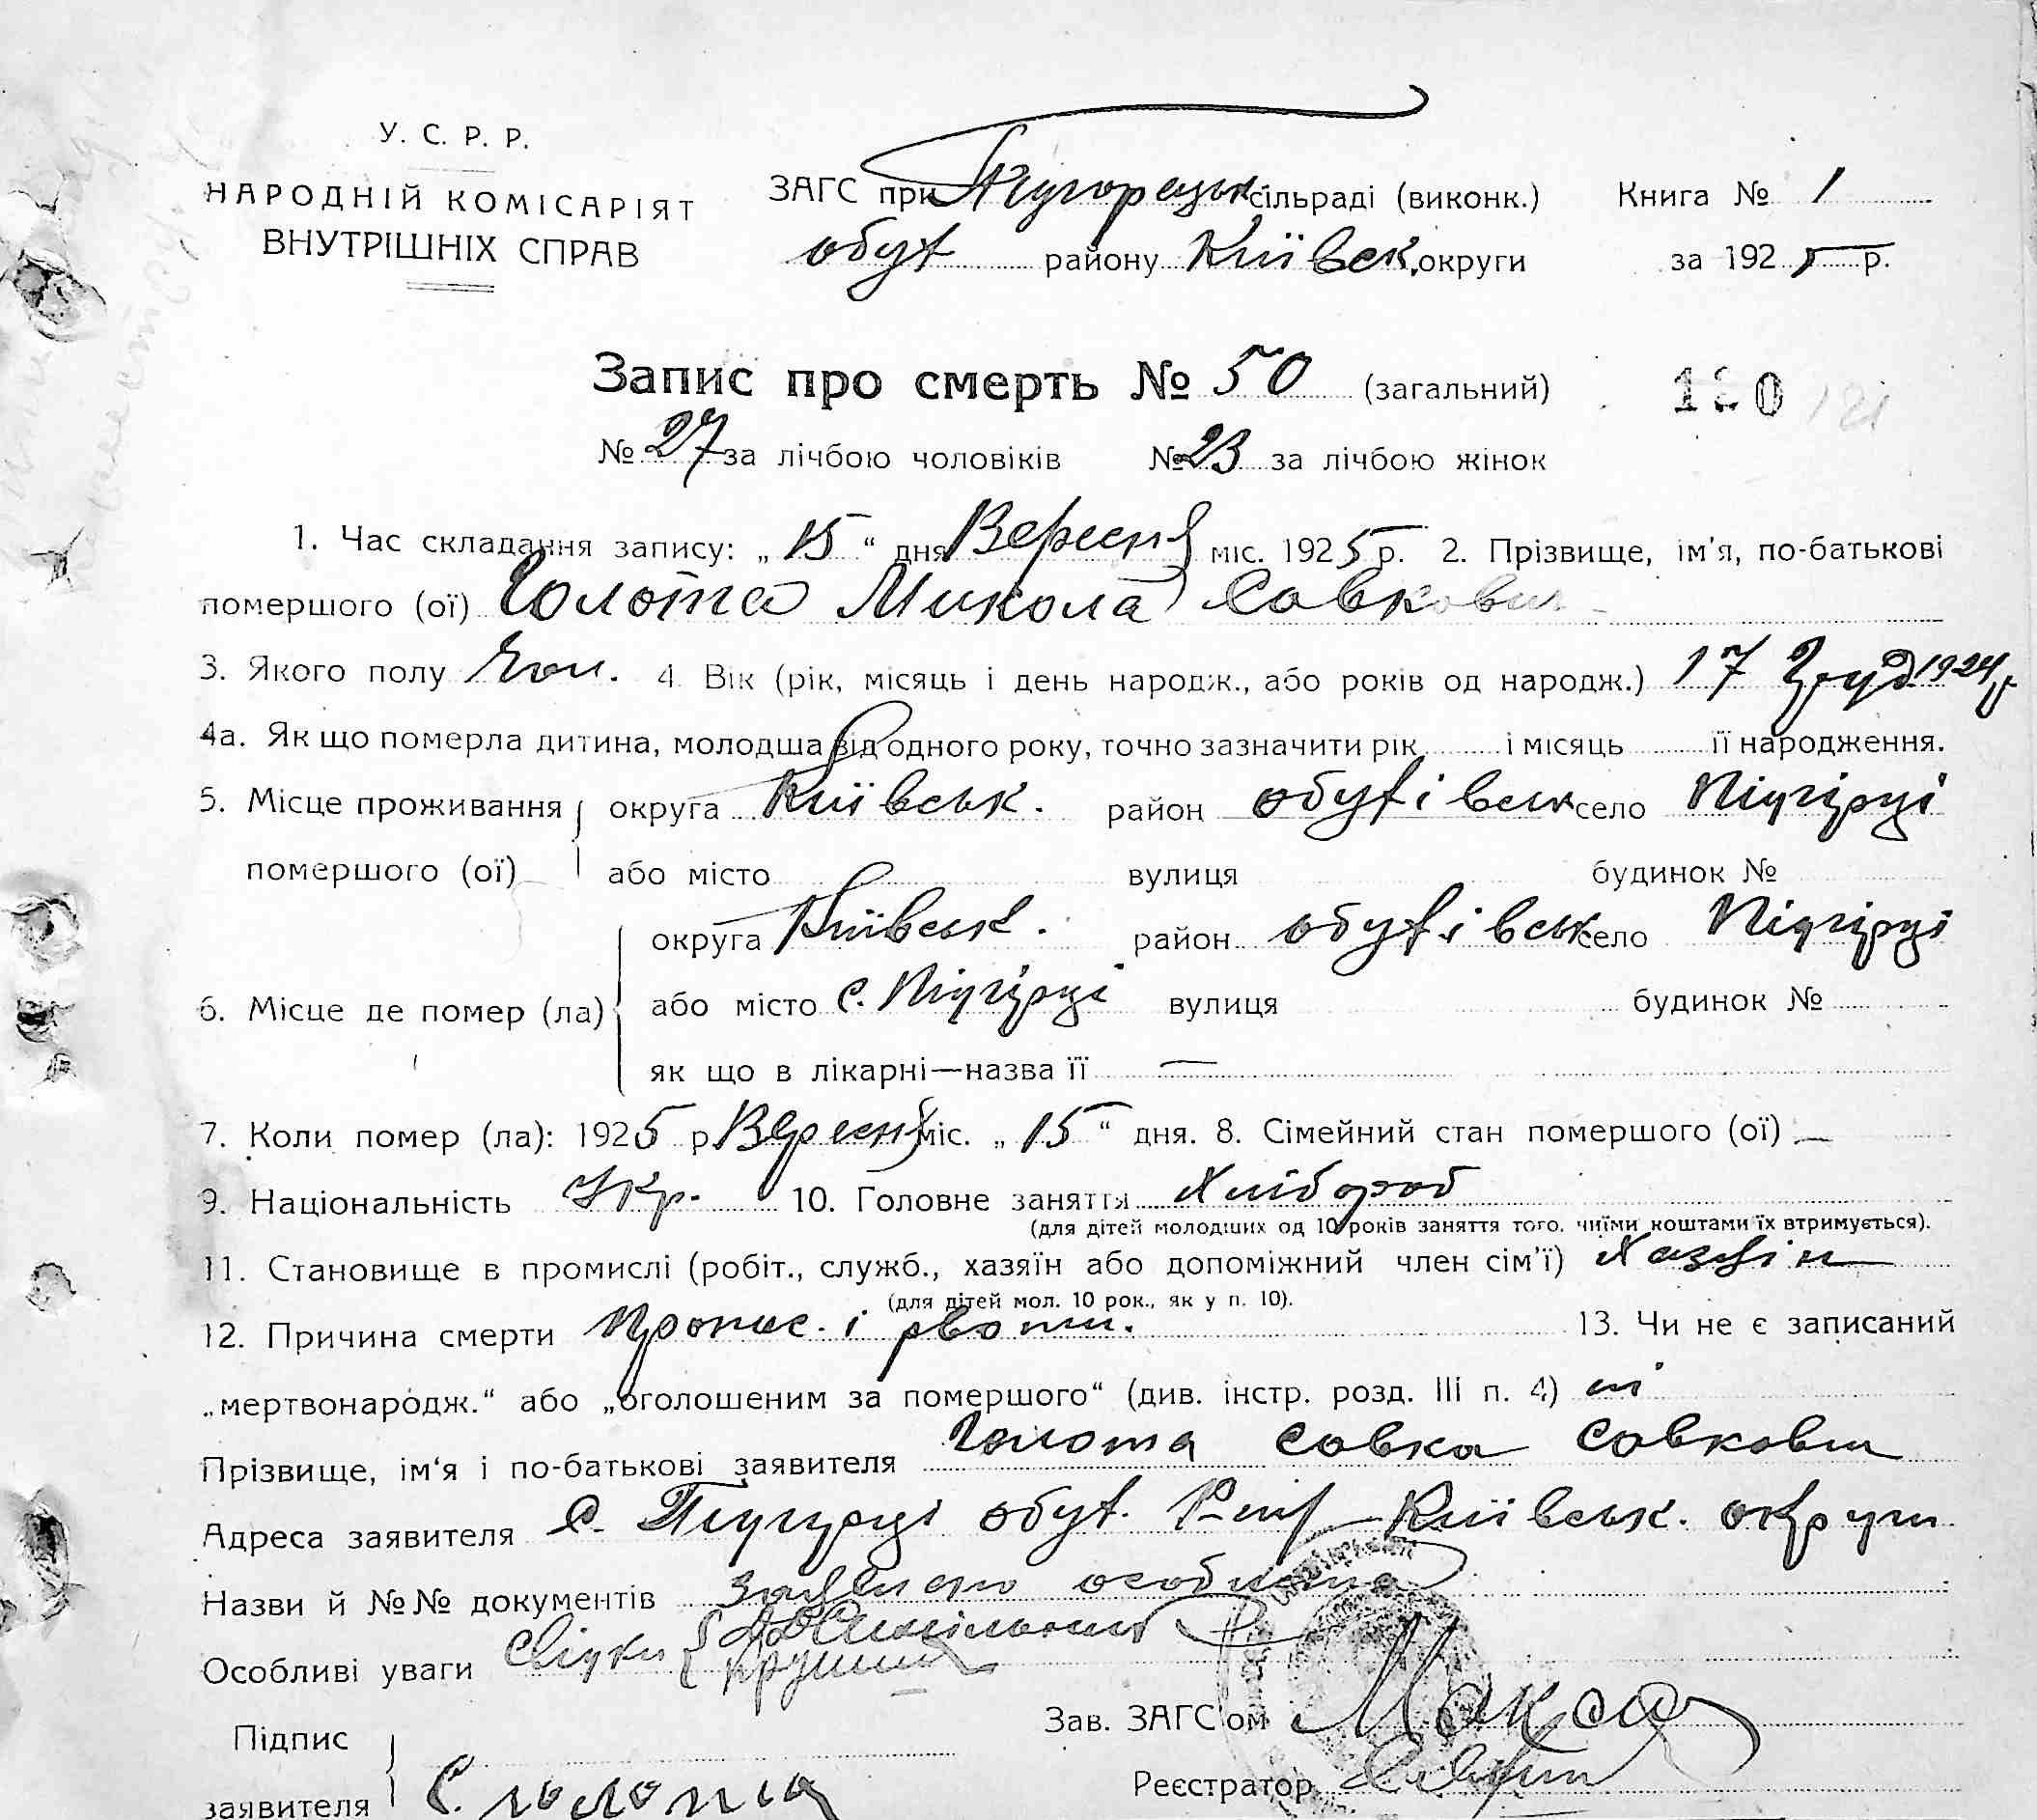 У. С. Р. Р.
НАРОДНІЙ КОМІСАРІЯТ
ВНУТРІШНІХ СПРАВ
ЗАГС при сільраді (виконк.)
обух району Київськ. округи
Книга № 1
за 1925 р.
Запис про смерть № 50 (загальний)
120 121
№ 27 за лічбою чоловіків № 23 за лічбою жінок
1. Час складання запису: „15“ дня Вересня міс. 1925 р. 2. Прізвище, ім'я, по-батькові
помершого (ої) Голота Микола Савкович
3. Якого полу Чол. 4 Вік (рік, місяць і день народж., або років од народж.) 17 Груд 1924 р
4а. Як що померла дитина, молодша від одного року, точно зазначити рік і місяць її народження.
5. Місце проживання округа Київськ. район обухівськ село Підгірці
помершого (ої) або місто вулиця будинок №
округа Київськ. район обухівськ село Підгірці
6. Місце де помер (ла) або місто с. Підгірці вулиця будинок №
як що в лікарні—назва її —
7. Коли помер (ла): 1925 р Вересня міс. „15“ дня. 8. Сімейний стан помершого (ої) —
9. Національність Укр. 10. Головне заняття Хлібороб
(для дітей молодших од 10 років заняття того, чиїми коштами їх втримується).
11. Становище в промислі (робіт., служб., хазяїн або допоміжний член сім'ї) Хазяїн
(для дітей мол. 10 рок., як у п. 10).
12. Причина смерти Пронос. і рвоти. 13. Чи не є записаний
„мертвонародж.“ або „оголошеним за помершого“ (див. інстр. розд. III п. 4) ні
Прізвище, ім'я і по-батькові заявителя Голота Савка Савкович
Адреса заявителя с. Підгірці обух. Київськ. округи
Назви й №№ документів заявлено особисто
Особливі уваги Свідки
Підпис
заявителя С. Голота
Зав. ЗАГС'ом
Реєстратор